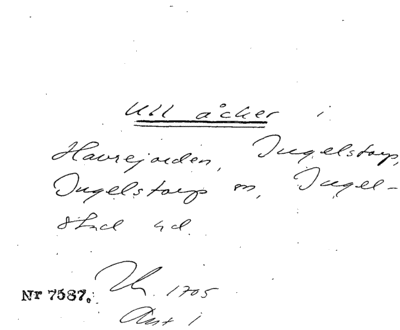 Ull åcker i
Havrejorden, Ingelstorp,
Ingelstorps sn, Ingel-
stad hd.
Nr 7587. 1705
Akt 1